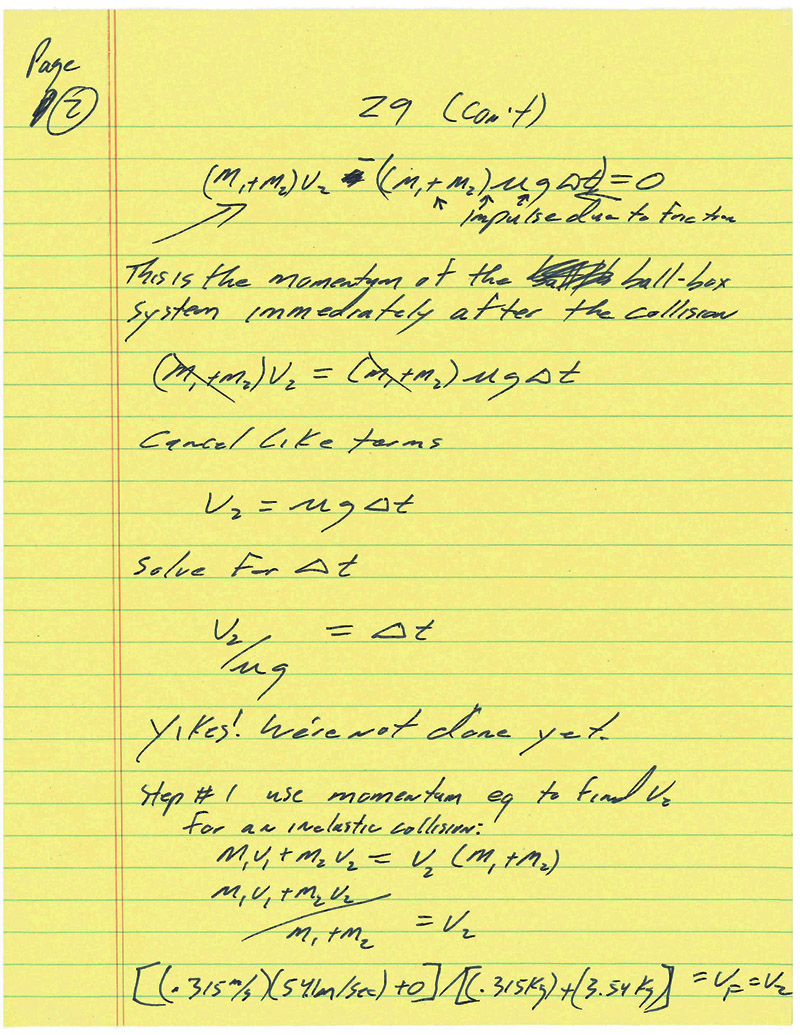 Page
②
29 (con't)
(M₁+M₂)V₂ - ((M₁+M₂)μgΔt)=0
impulse due to friction
This is the momentum of the ball-box
system immediately after the collision
(M₁+M₂)V₂ = (M₁+M₂)μgΔt
Cancel Like terms
V₂ = μgΔt
Solve For Δt
V₂/μg = Δt
Yikes! We're not done yet.
Step #1 use momentum eq to find V₂
For an inelastic collision:
M₁V₁+M₂V₂ = V₂ (M₁+M₂)
M₁V₁+M₂V₂
/ M₁+M₂ = V₂
[(.315m/s)(541m/sec)+0]/[(.315Kg)+(3.54Kg)] =V_F=V₂